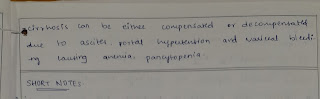 cirrhosis can be either compensated or decompensated
due to ascites, portal hypertention and variceal bleedi
ng causing anemia, pancytopenia.
SHORT NOTES